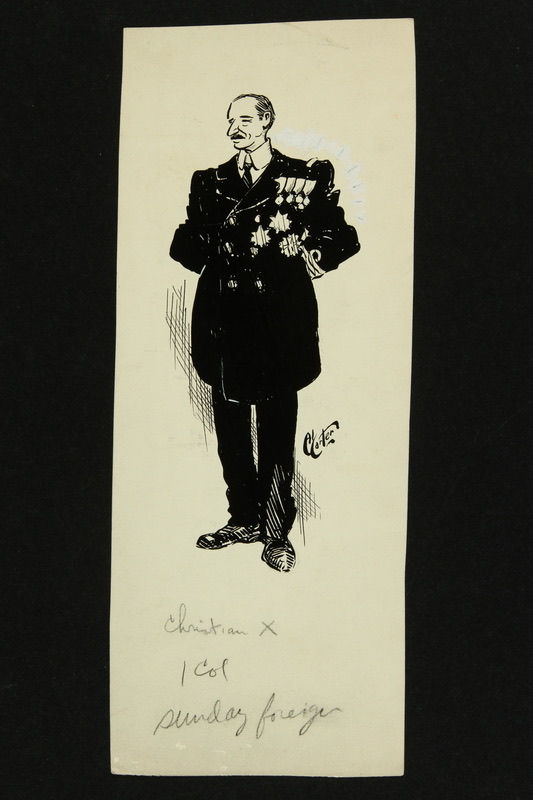 Carter
Christian X
1 Col
Sunday foreign